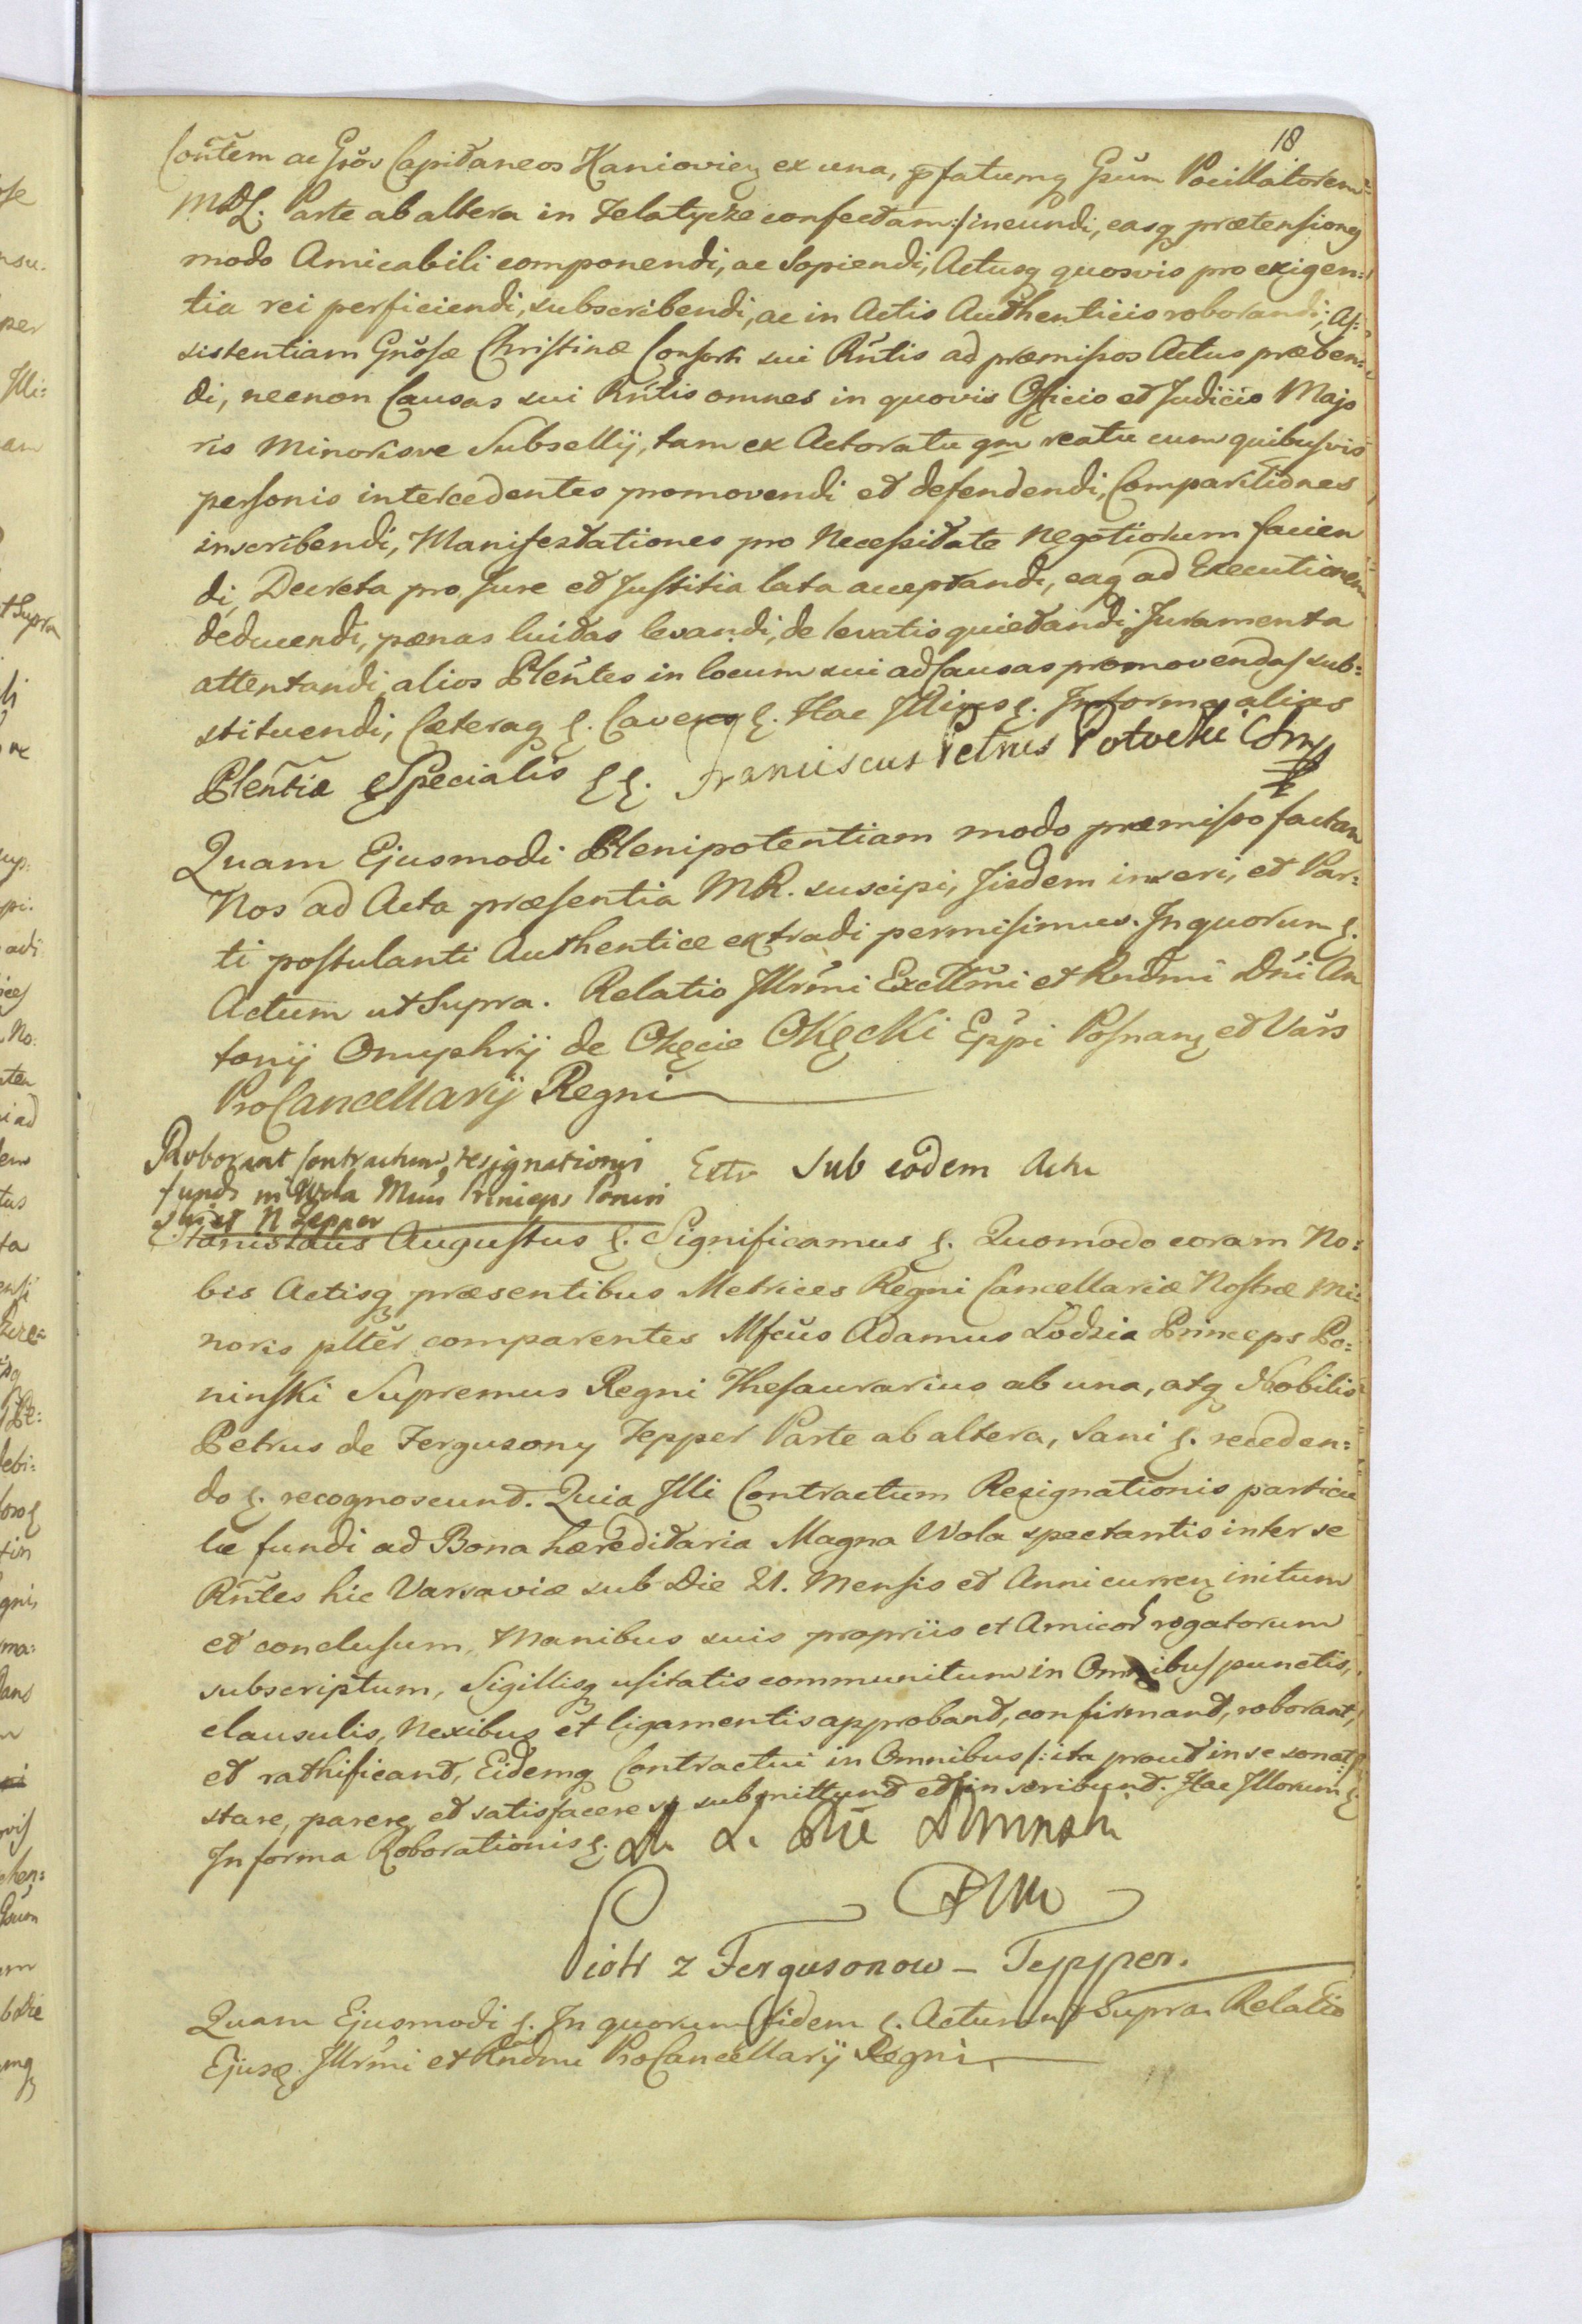 18
Contem ac Gsos Capitaneos Kaniovien ex una, pfatumq Gsum Pocillatorem
MDL. Parte ab altera in Telatycze confectam :/ ineundi, easq prætensiones
modo Amicabili componendi, ac Sopiendi, Actusq quosvis pro exigen:
tia rei perficiendi, subscribendi, ac in Actis Authenticis roborandi; As:
sistentiam Gnosæ Christinæ Consorti sui Rntis ad præmissos Actus præben:
di, necnon Causas sui Rntis omnes in quovis Officio et Judicio Majo
ris Minorisve Subsellij, tam ex Actoratu qm reatu cum quibusvis
personis intercedentes promovendi et defendendi, Comparitiones
inscribendi, Manifestationes pro Necessitate Negotiorum facien
di, Decreta pro Jure et Justitia lata acceptandi, eaq ad Executionem
deducendi, pœnas luitas levandi, de levatis quietandi, Juramenta
attentandi, alios Plentes in locum sui ad Causas promovendas sub:
stituendi, Cæteraq &. Cavens &. Hac Illius &. In forma alias
Plentiæ Specialis &&. Franciscus Petrus Potocki
Quam Ejusmodi Plenipotentiam modo præmisso factam
Nos ad Acta præsentia MR. suscipi, Iisdem inseri, et Par:
ti postulanti Authentice extradi permisimus. In quorum &.
Actum ut Supra. Relatio Illrmi Excllmi et Rndmi Dni An
tonij Onuphrij de Okęcie Okęcki Eppi Posnan et Vars
ProCancellarij Regni
Roborant Contractum resignationis
fundi in Wola Mcus Princeps Ponin
ski et N Tepper
Extr Sub eodem Actu
Stanislaus Augustus &. Significamus &. Quomodo coram No:
bis Actisq præsentibus Metrices Regni Cancellariæ Nostræ Mi:
noris plter comparentes Mfcus Adamus Łodzia Princeps Po:
ninski Supremus Regni Thesaurarius ab una, atq Nobilis
Petrus de Fergusony Tepper Parte ab altera, Sani &. receden:
do &. recognoscunt. Quia Illi Contractum Resignationis particu
læ fundi ad Bona hæreditaria Magna Wola spectantis inter se
Rntes hic Varsaviæ sub Die 21. Mensis et Anni curren initum
et conclusum, Manibus suis propriis et Amicor rogatorum
subscriptum, Sigillisq usitatis communitum in Omnibus punctis,
clausulis, Nexibus et ligamentis approbant, confirmant, roborant,
et rathificant, Eidemq Contractui in Omnibus /: ita prout in se sonat :/
stare, parere, et satisfacere se submittunt et inscribunt. Hac Illorum &
In forma Roborationis &.
Piotr z Fergusonow – Tepper.
Quam Ejusmodi &. In quorum fidem &. Actum ut Supra. Relatio
Ejusq. Illrmi et Rndmi ProCancellarij Regni